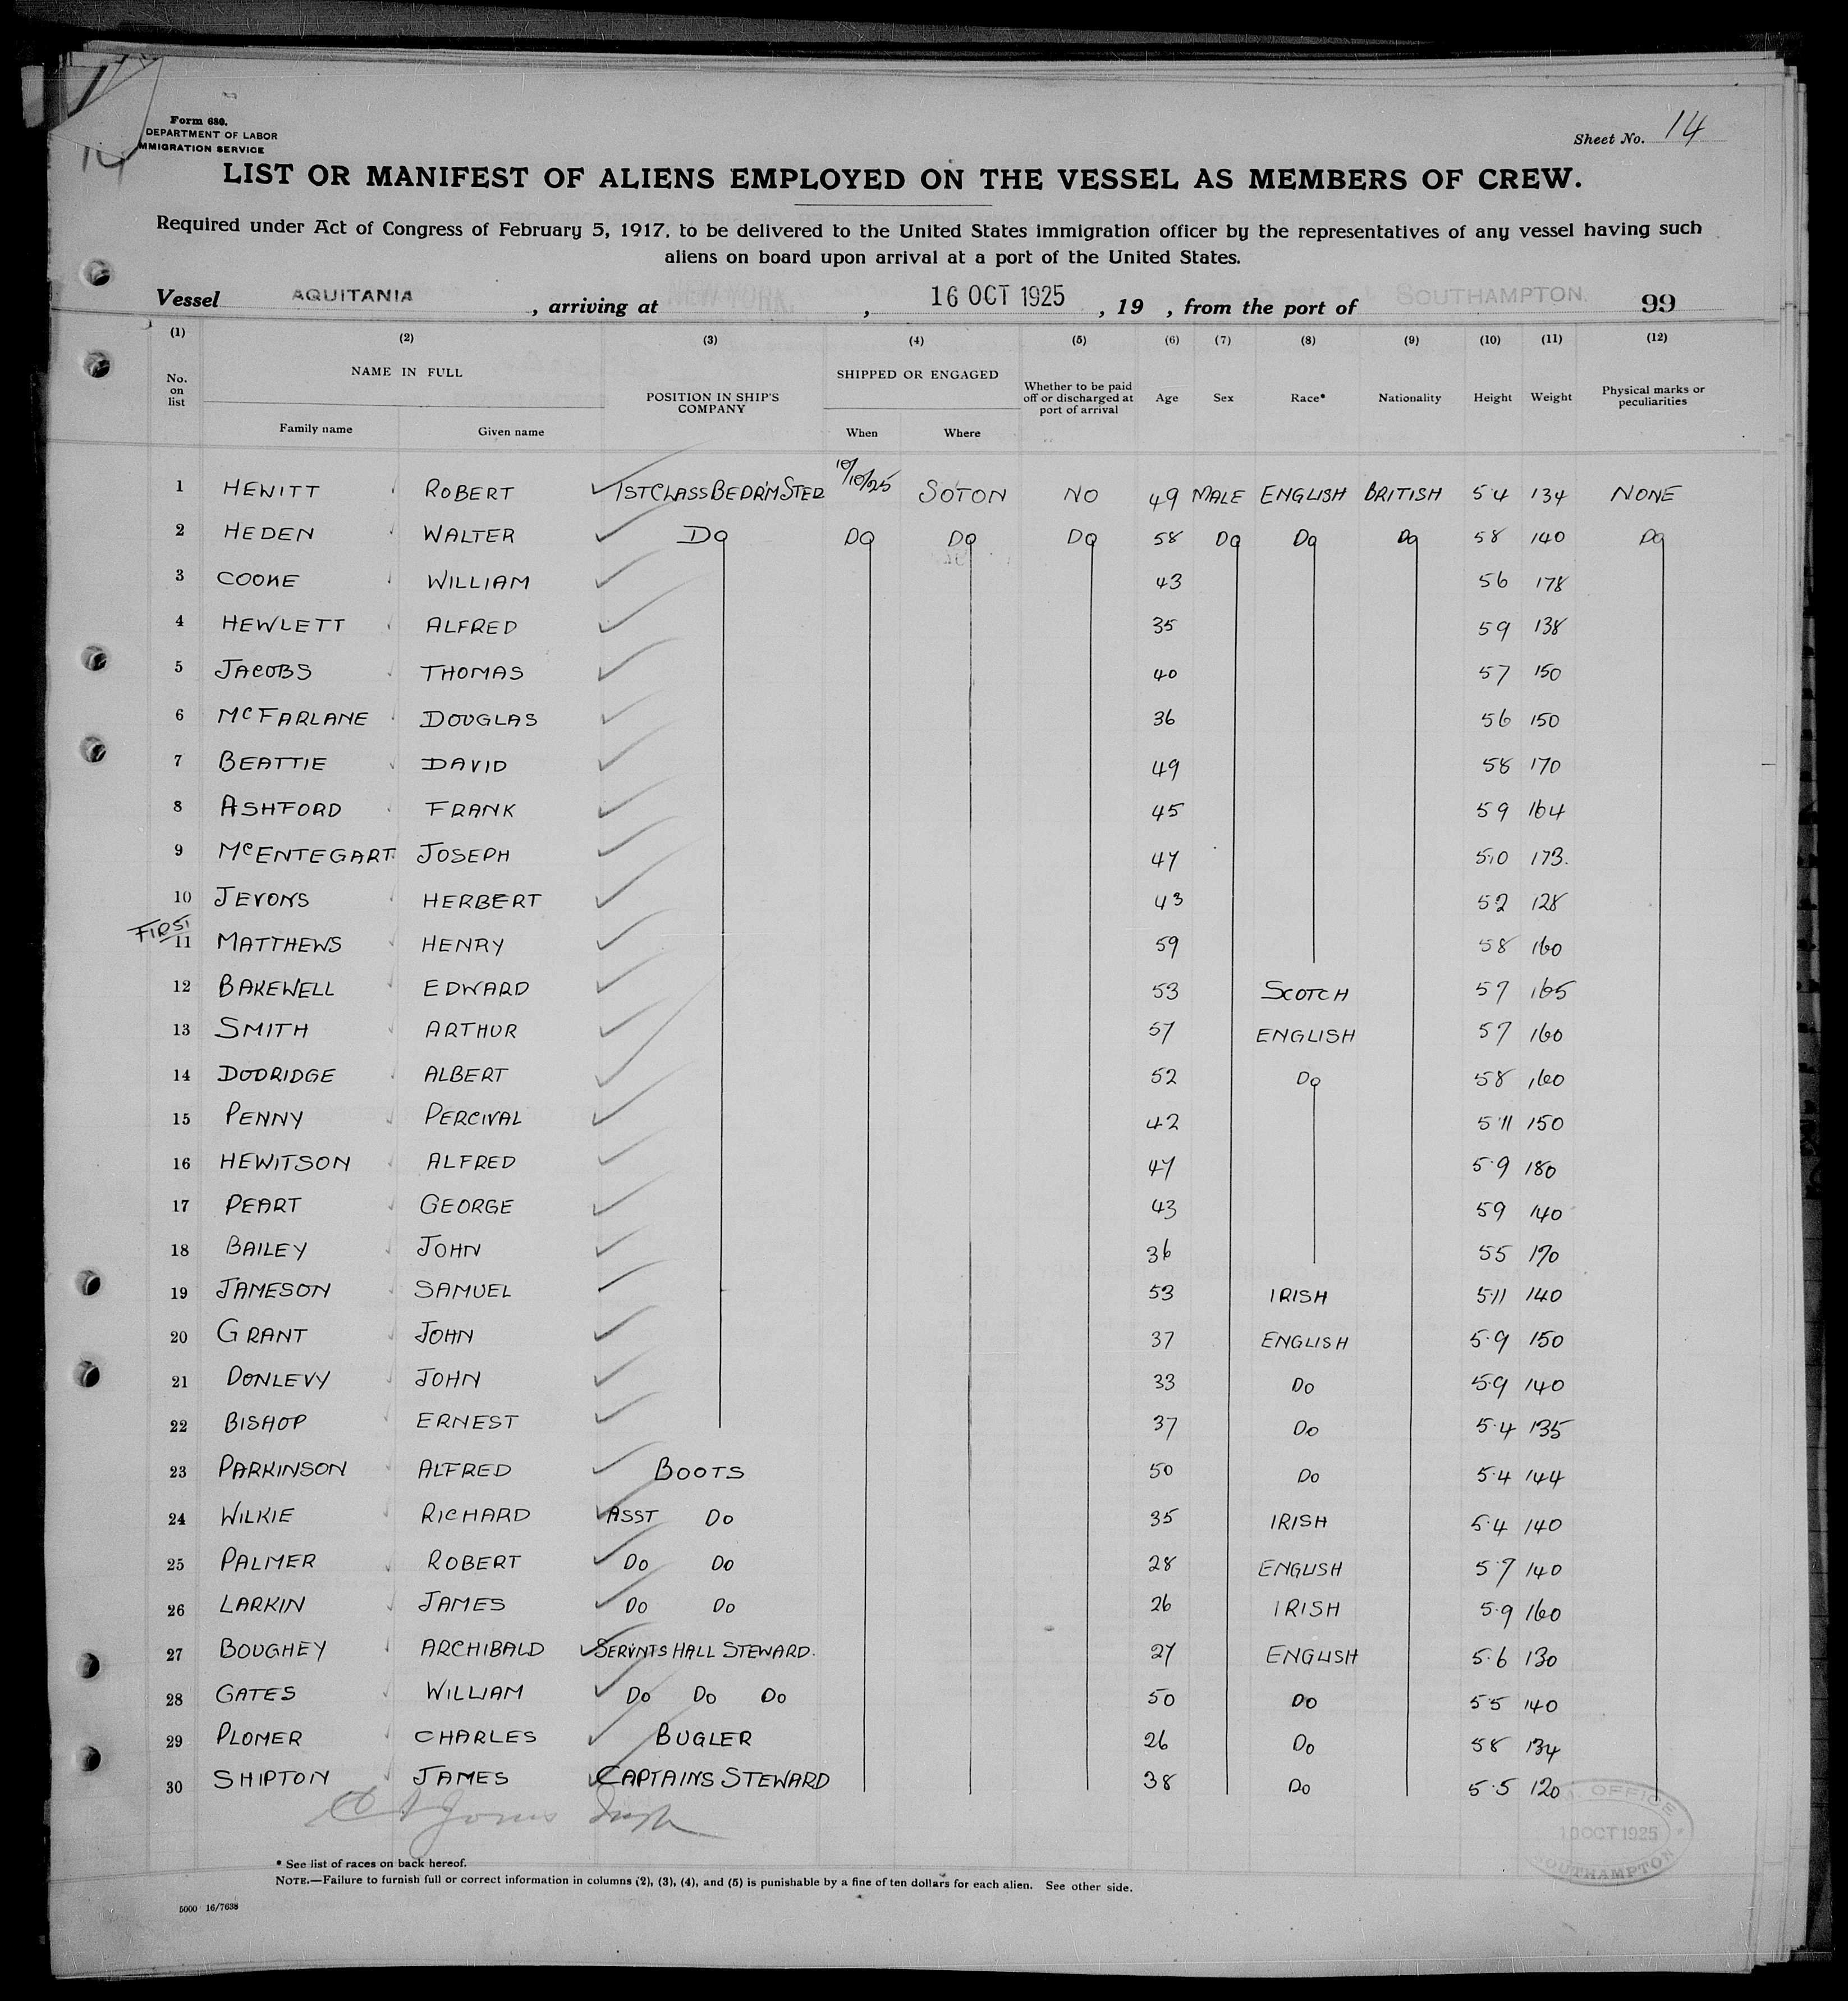 Form 680.
DEPARTMENT OF LABOR
MMIGRATION SERVICE
Sheet No. 14
LIST OR MANIFEST OF ALIENS EMPLOYED ON THE VESSEL AS MEMBERS OF CREW.
Required under Act of Congress of February 5, 1917, to be delivered to the United States immigration officer by the representatives of any vessel having such
aliens on board upon arrival at a port of the United States.
Vessel AQUITANIA, arriving at NEW YORK, 16 OCT 1925, 19 , from the port of SOUTHAMPTON. 99
(1) (2) (3) (4) (5) (6) (7) (8) (9) (10) (11) (12)
No. on list NAME IN FULL Family name Given name POSITION IN SHIP'S COMPANY SHIPPED OR ENGAGED When Where Whether to be paid off or discharged at port of arrival Age Sex Race* Nationality Height Weight Physical marks or peculiarities
1 HEWITT ROBERT 1ST CLASS BEDR'M STED 10/10/25 SOTON NO 49 MALE ENGLISH BRITISH 5 4 134 NONE
2 HEDEN WALTER DO DO DO DO 58 DO DO DO 5 8 140 DO
3 COOKE WILLIAM 43 5 6 178
4 HEWLETT ALFRED 35 5 9 138
5 JACOBS THOMAS 40 5 7 150
6 McFARLANE DOUGLAS 36 5 6 150
7 BEATTIE DAVID 49 5 8 170
8 ASHFORD FRANK 45 5 9 164
9 McENTEGART JOSEPH 47 5.10 173.
10 JEVONS HERBERT 43 5 2 128
FIRST
11 MATTHEWS HENRY 59 5 8 160
12 BAKEWELL EDWARD 53 SCOTCH 5 7 165
13 SMITH ARTHUR 57 ENGLISH 5 7 160
14 DODRIDGE ALBERT 52 DO 5 8 160
15 PENNY PERCIVAL 42 5 11 150
16 HEWITSON ALFRED 47 5.9 180
17 PEART GEORGE 43 5 9 140
18 BAILEY JOHN 36 5 5 170
19 JAMESON SAMUEL 53 IRISH 5.11 140
20 GRANT JOHN 37 ENGLISH 5.9 150
21 DONLEVY JOHN 33 DO 5.9 140
22 BISHOP ERNEST 37 DO 5.4 135
23 PARKINSON ALFRED BOOTS 50 DO 5.4 144
24 WILKIE RICHARD ASST DO 35 IRISH 5.4 140
25 PALMER ROBERT DO DO 28 ENGLISH 5 7 140
26 LARKIN JAMES DO DO 26 IRISH 5.9 160
27 BOUGHEY ARCHIBALD SERVNTS HALL STEWARD. 27 ENGLISH 5.6 130
28 GATES WILLIAM DO DO DO 50 DO 5 5 140
29 PLOMER CHARLES BUGLER 26 DO 5 8 134
30 SHIPTON JAMES CAPTAINS STEWARD 38 DO 5.5 120
OFFICE
10 OCT 1925
SOUTHAMPTON
* See list of races on back hereof.
NOTE.—Failure to furnish full or correct information in columns (2), (3), (4), and (5) is punishable by a fine of ten dollars for each alien. See other side.
5000 16/7638